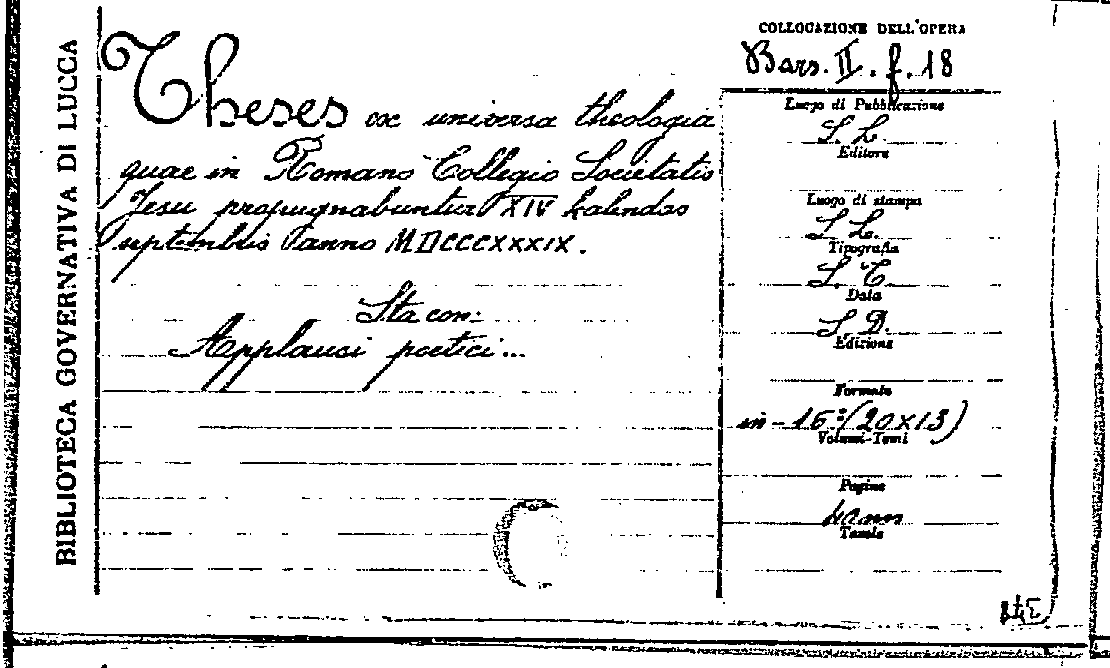 BIBLIOTECA GOVERNATIVA DI LUCCA
Theses ex universa theologia
quae in Romano Collegio Societatis
Jesu propugnabuntur XIV kalendas
septembris anno MDCCCXXXIX.
Sta con:
Applausi poetici...
COLLOCAZIONE DELL'OPERA
Bars. II. f. 18
Luogo di Pubblicazione
S. L.
Editore
Luogo di stampa
S. L.
Tipografia
S. T.
Data
S. D.
Edizione
Formato
in-16º (20x13)
Volumi-Tomi
Pagine
Tavole